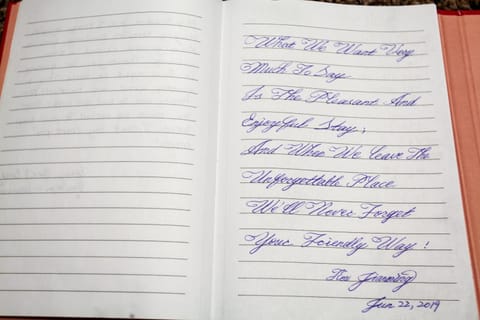 What We Want Very
Much To Say
Is The Pleasant And
Enjoyful Stay;
And When We Leave The
Unforgettable Place
We'll Never Forget
Your Friendly Way!
Jun 22, 2019